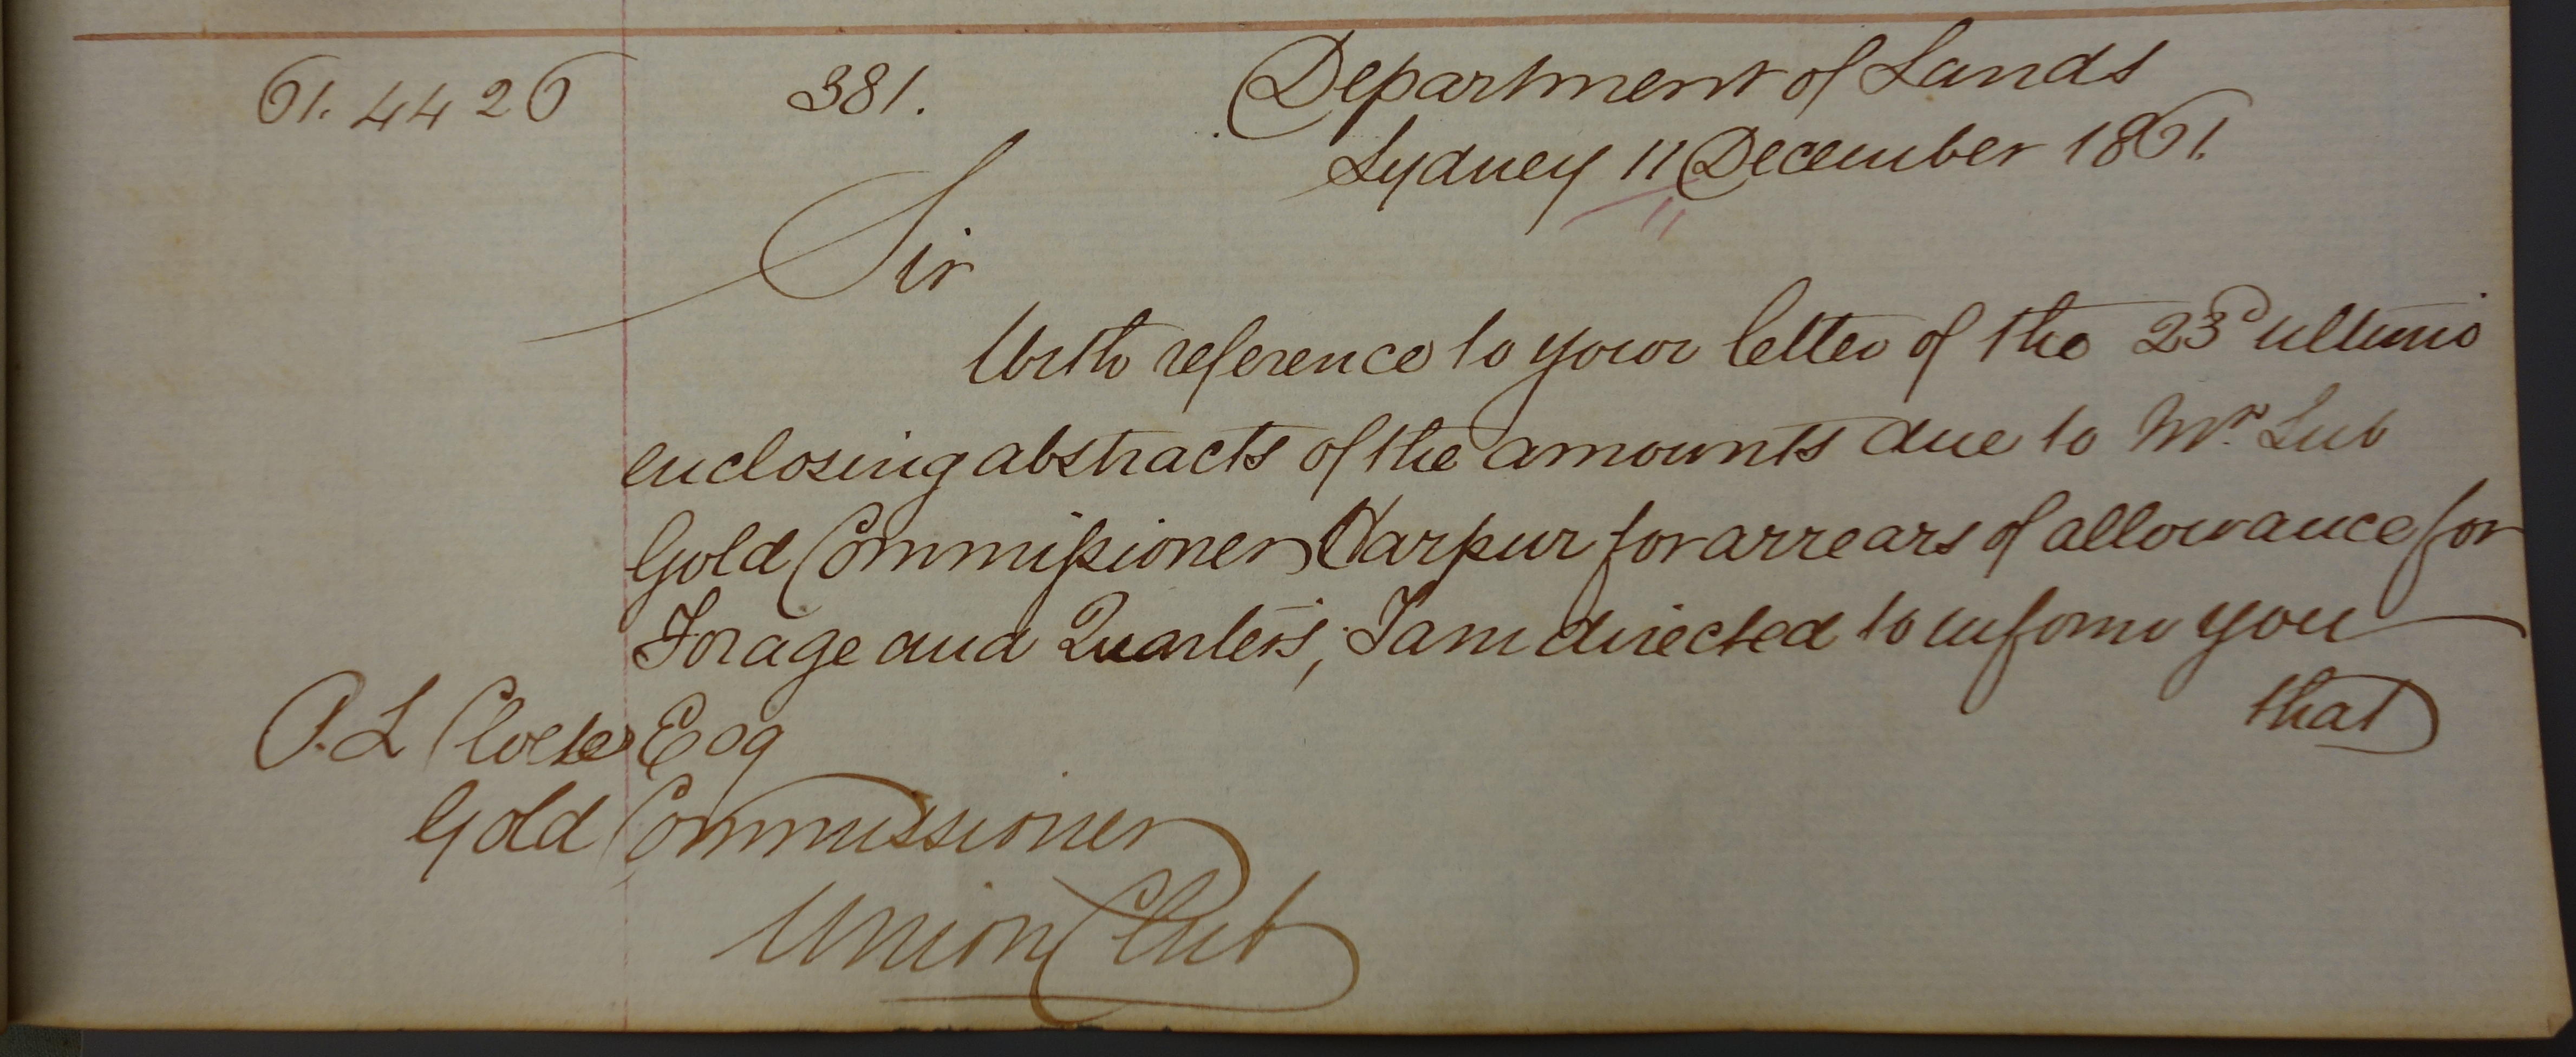 61.4426 381. Department of Lands
Sydney 11 December 1861.
Sir
With reference to your letter of the 23d ultimo
enclosing abstracts of the amounts due to Mr. Sub
Gold Commissioner Harpur for arrears of allowance for
Forage and Quarters, I am directed to inform you
that
P. L Cloete Esq
Gold Commissioner
Union Club